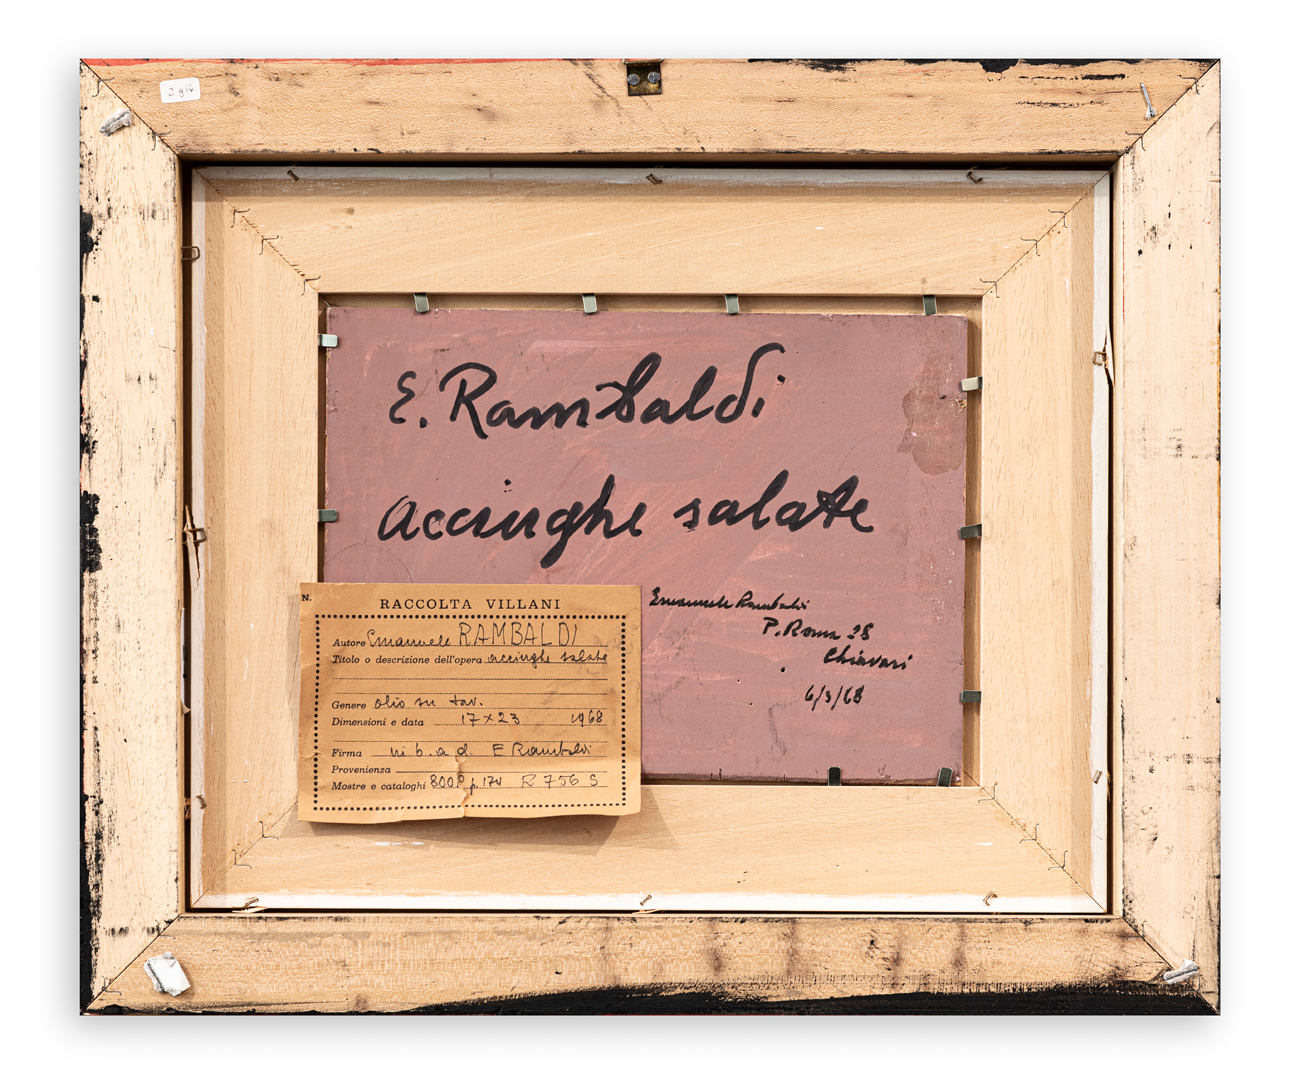 E. Rambaldi
acciughe salate
Emanuele Rambaldi
P. Roma 28
Chiavari
6/3/68
N.
RACCOLTA VILLANI
Autore Emanuele RAMBALDI
Titolo o descrizione dell'opera acciughe salate
Genere olio su tav.
Dimensioni e data 17×23 1968
Firma in b. a d. E Rambaldi
Provenienza
Mostre e cataloghi 800 p. 174 R 756 S